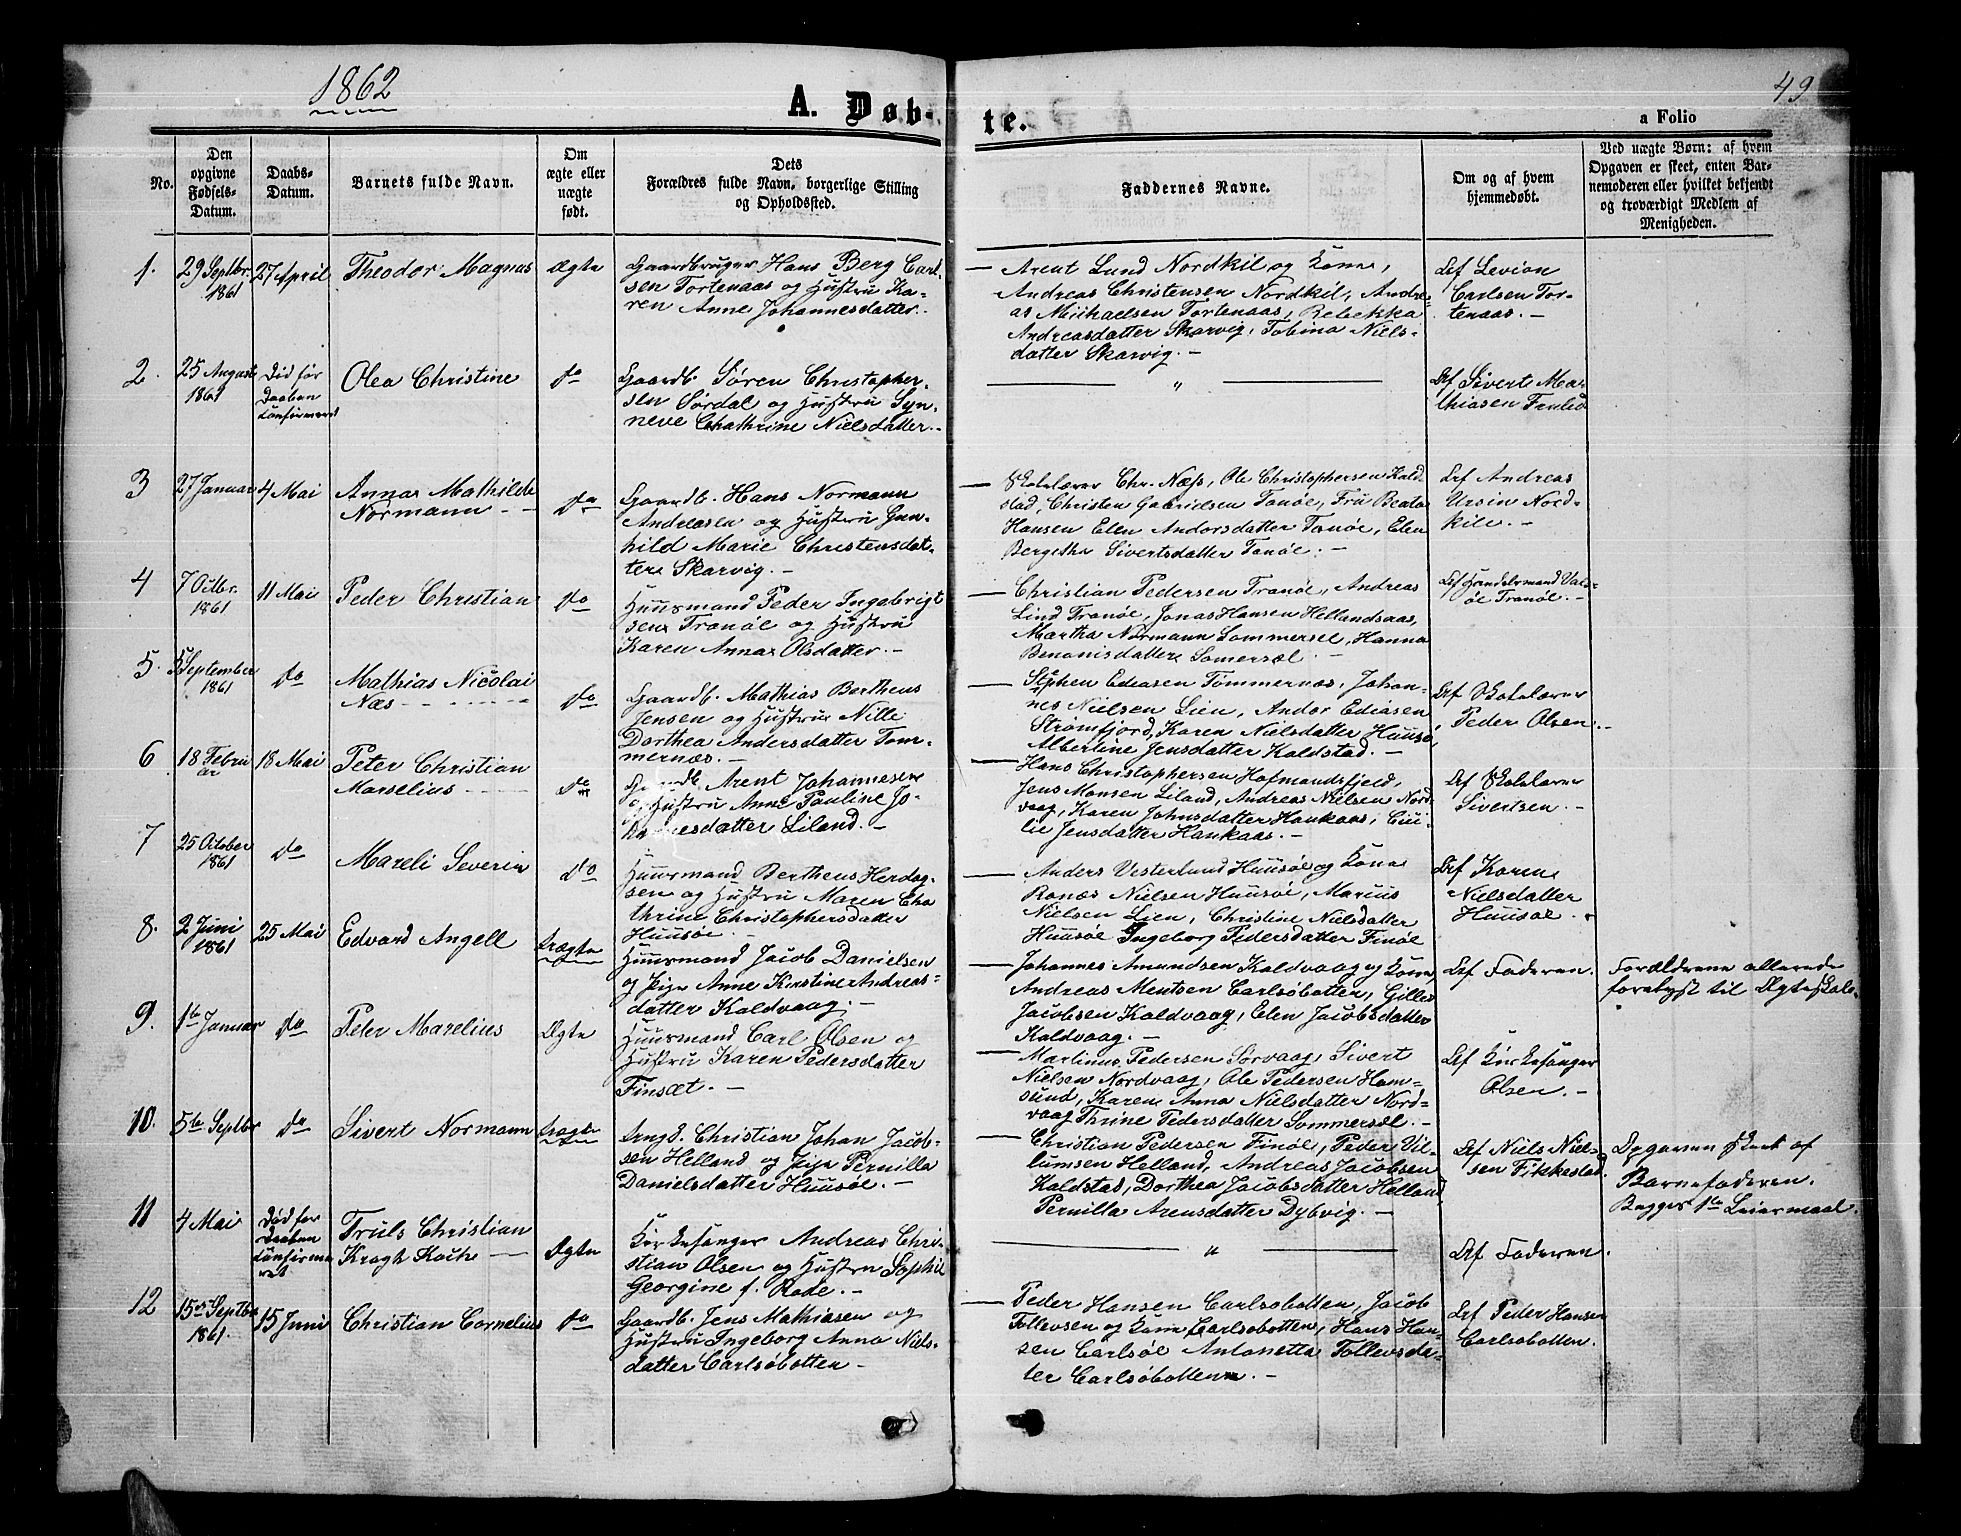 1862
49
A. Døb-
te.
a Folio
No.
Den
opgivne
Fødsels-
Datum.
Daabs-
Datum.
Barnets fulde Navn.
Om
ægte eller
uægte
født.
Dets
Forældres fulde Navn, borgerlige Stilling
og Opholdssted.
Faddernes Navne.
Om og af hvem
hjemmedøbt.
Ved uægte Børn: af hvem
Opgaven er skeet, enten Bar-
nemoderen eller hvilket bekjendt
og troværdigt Medlem af
Menigheden.
1.
29 Septbr.
1861
27 April
Theodor Magnus
Ægte
Gaardbruger Hans Berg Carl-
sen Tortenaas og Hustru Ka-
ren Anne Johannesdatter.
— Arent Lund Nordkil og Kone,
Andreas Christensen Nordkil, Andre-
as Michaelsen Tortenaas, Rebekka
Andreasdatter Skarvig, Tobina Niels-
datter Skarvig. —
Levion
Carlsen Tor-
tenaas. —
2.
25 August
1861
Død før
Daaben
Confirmeret
Olea Christine
do
Gaardb. Søren Christopher-
sen Sørdal og Hustru Syn-
neve Chathrine Nielsdatter. —
— „ —
Sivert Ma-
thiasen
3
27 Januar
4 Mai
Anna Mathilde
Normann —
do
Gaardb. Hans Normann
Andreasen og Hustru Gun-
hild Marie Christensdat-
ter Skarvig. —
— Skolelærer Chr. Næss, Ole Christophersen Kald-
stad, Christen Gabrielsen Tanøe, Fru Beata
Hansen Elen Andorsdatter Tanøe, Elen
Bergitha Sivertsdatter Tanøe. —
Andreas
Ursin Nord-
kil. —
4
7 Octbr.
1861
11 Mai
Peder Christian
do
Huusmand Peder Ingebrigt
sen Tranøe og Hustru
Karen Anna Olsdatter. —
— Christian Pedersen Tranøe, Andreas
Lind Tranøe, Jonas Hansen Hellandsaas,
Martha Normann Sommersel, Hanna
Benonisdatter Somersæl. —
Handelsmand
Tranøe. —
5.
5 September
1861
do
Mathias Nicolai
Næs —
do
Gaardb. Mathias Bertheus
Jensen og Hustru Nille
Dorthea Andersdatter Tom-
mernæs. —
— Stephen Ediasen Tømmernæs, Johan-
nes Nielsen Lien, Andor Ediasen
Strømfjord, Karen Nielsdatter Huusø,
Albertine Jensdatter Kaldstad. —
Skolelærer
Peder Olsen. —
6
18 Febru
ar
18 Mai
Peter Christian
Marselius —
do
Gaardb. Arent Johannesen
og Hustru Anne Pauline Jo-
hannesdatter Liland. —
— Hans Christophersen Hofmandsfjeld,
Jens Monsen Liland, Andreas Nielsen Nord-
vaag, Karen Johnsdatter Haukaas,
Jensdatter Haukaas. —
Skolelærer
Sivertsen. —
7
25 October
1861
do
Mareli Severin
do
Huusmand Bertheus Herdag-
sen og Hustru Maren Cha
thrine Christophersdatter
Huusøe. —
— Anders Vesterlund Huusøe og Kone
Ronæs Nielsen Huusøe, Marius
Nielsen Lien, Christine Nielsdatter
Huusøe Ingeborg Pedersdatter Finøe
Karen
Nielsdatter
Huusøe.
8.
2 Juni
1861
25 Mai
Edvard Angell
Uægte
Huusmand Jacob Danielsen
og Pige Anne Kirstine Andreas-
datter Kaldvaag. —
— Johannes Amundsen Kaldvaag og Kone,
Andreas Mentsen Carlsøbotten, Gilles
Jacobsen Kaldvaag, Elen Jacobsdatter
Kaldvaag. —
Faderen.
Forældrene allerede
forelyst til Ægteskab.
9.
1te Januar
do
Peter Marelius
Ægte
Huusmand Carl Olsen og
Hustru Karen Pedersdatter
Finsæt. —
— Martinus Pedersen Sørvaag, Sivert
Nielsen Nordvaag, Ole Pedersen Ham-
sund, Karen Anna Nielsdatter Nord-
vaag Thrine Pedersdatter Sommersel. —
Kirkesanger
Olsen. —
10.
5te Septbr
do
Sivert Normann
Uægte
Ungk. Christian Johan Jacob-
sen Helland og Pige Pernilla
Danielsdatter Huusøe. —
— Christian Pedersen Finøe, Peder Vil-
lumsen Helland, Andreas Jacobsen
Kaldstad, Dorthea Jacobsdatter Helland,
Pernilla Arensdatter Dybvig. —
Niels Niel-
sen Fikkestad.
Opgaven skeet af
Barnefaderen.
Begges 1te Leiermaal.
11
4 Mai
Død før
Daaben
Confirme
ret
Truls Christian
Kragh Koch —
Ægte
Kirkesanger Andreas Chri-
stian Olsen og Hustru Sophie
Georgine f. Rode. —
— „ —
Faderen.
12
15de Septbr.
1861.
15 Juni
Christian Cornelius
do
Gaardb. Jens Mathiasen og
Hustru Ingeborg Anna Niels-
datter Carlsøbotten —
— Peder Hansen Carlsøbotten, Jacob
Tollevsen og Kone Carlsøbotten, Hans Han-
sen Carlsøe Antonetta Tollevsda-
ter Carlsøbotten. —
Peder Hansen
Carlsøbotten.